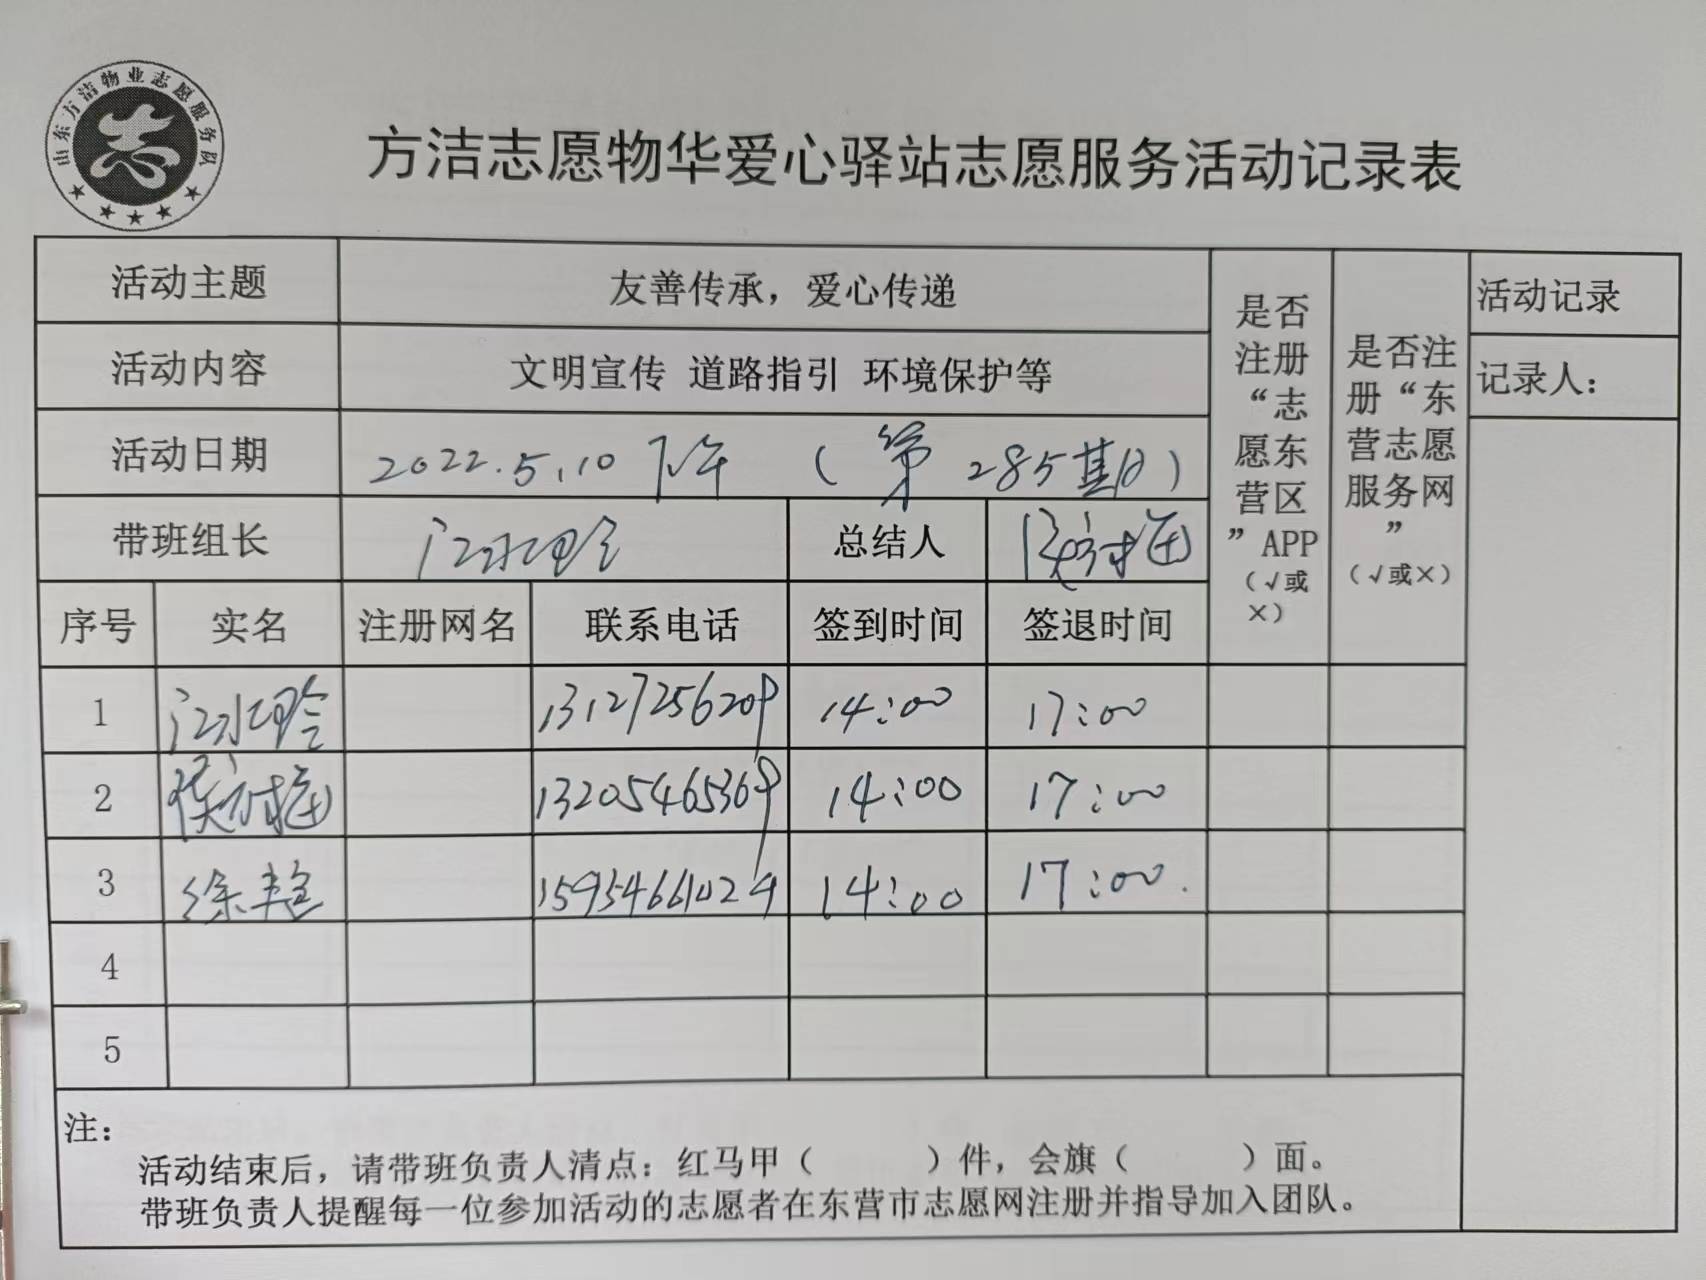 山东方洁物业志愿服务队
志
方洁志愿物华爱心驿站志愿服务活动记录表
活动主题 友善传承，爱心传递
活动内容 文明宣传 道路指引 环境保护等
活动日期 2022.5.10 下午 （第 285期）
带班组长 江水玲 总结人
是否注册“志愿东营区”APP（√或×）
是否注册“东营志愿服务网”（√或×）
活动记录
记录人：
序号 实名 注册网名 联系电话 签到时间 签退时间
1 江水玲 13127256209 14:00 17:00
2 13205465369 14:00 17:00
3 徐艳 15954661024 14:00 17:00.
4
5
注：
活动结束后，请带班负责人清点：红马甲（ ）件，会旗（ ）面。
带班负责人提醒每一位参加活动的志愿者在东营市志愿网注册并指导加入团队。